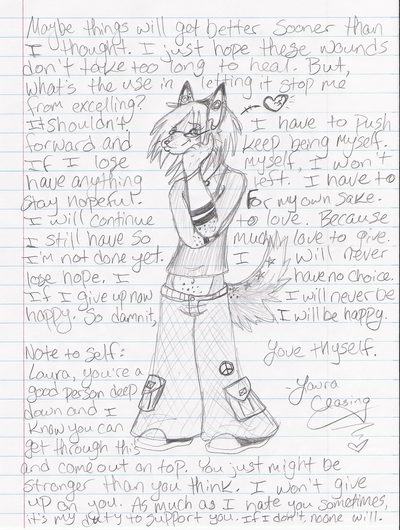 Maybe things will get better sooner than
I thought. I just hope these wounds
don't take too long to heal. But,
what's the use in letting it stop me
from excelling?
It shouldn't. I have to push
forward and keep being myself.
If I lose myself, I won't
have anything left. I have to
stay hopeful. For my own sake.
I will continue to love. Because
I still have so much love to give.
I'm not done yet. I will never
lose hope. I have no choice.
If I give up now I will never be
happy. So damnit, I will be happy.
Note to Self: Love thyself.
Laura, you're a
good person deep
down and I
know you can
get through this
and come out on top. You just might be
stronger than you think. I won't give
up on you. As much as I hate you sometimes,
it's my duty to support you. If I don't, none will.